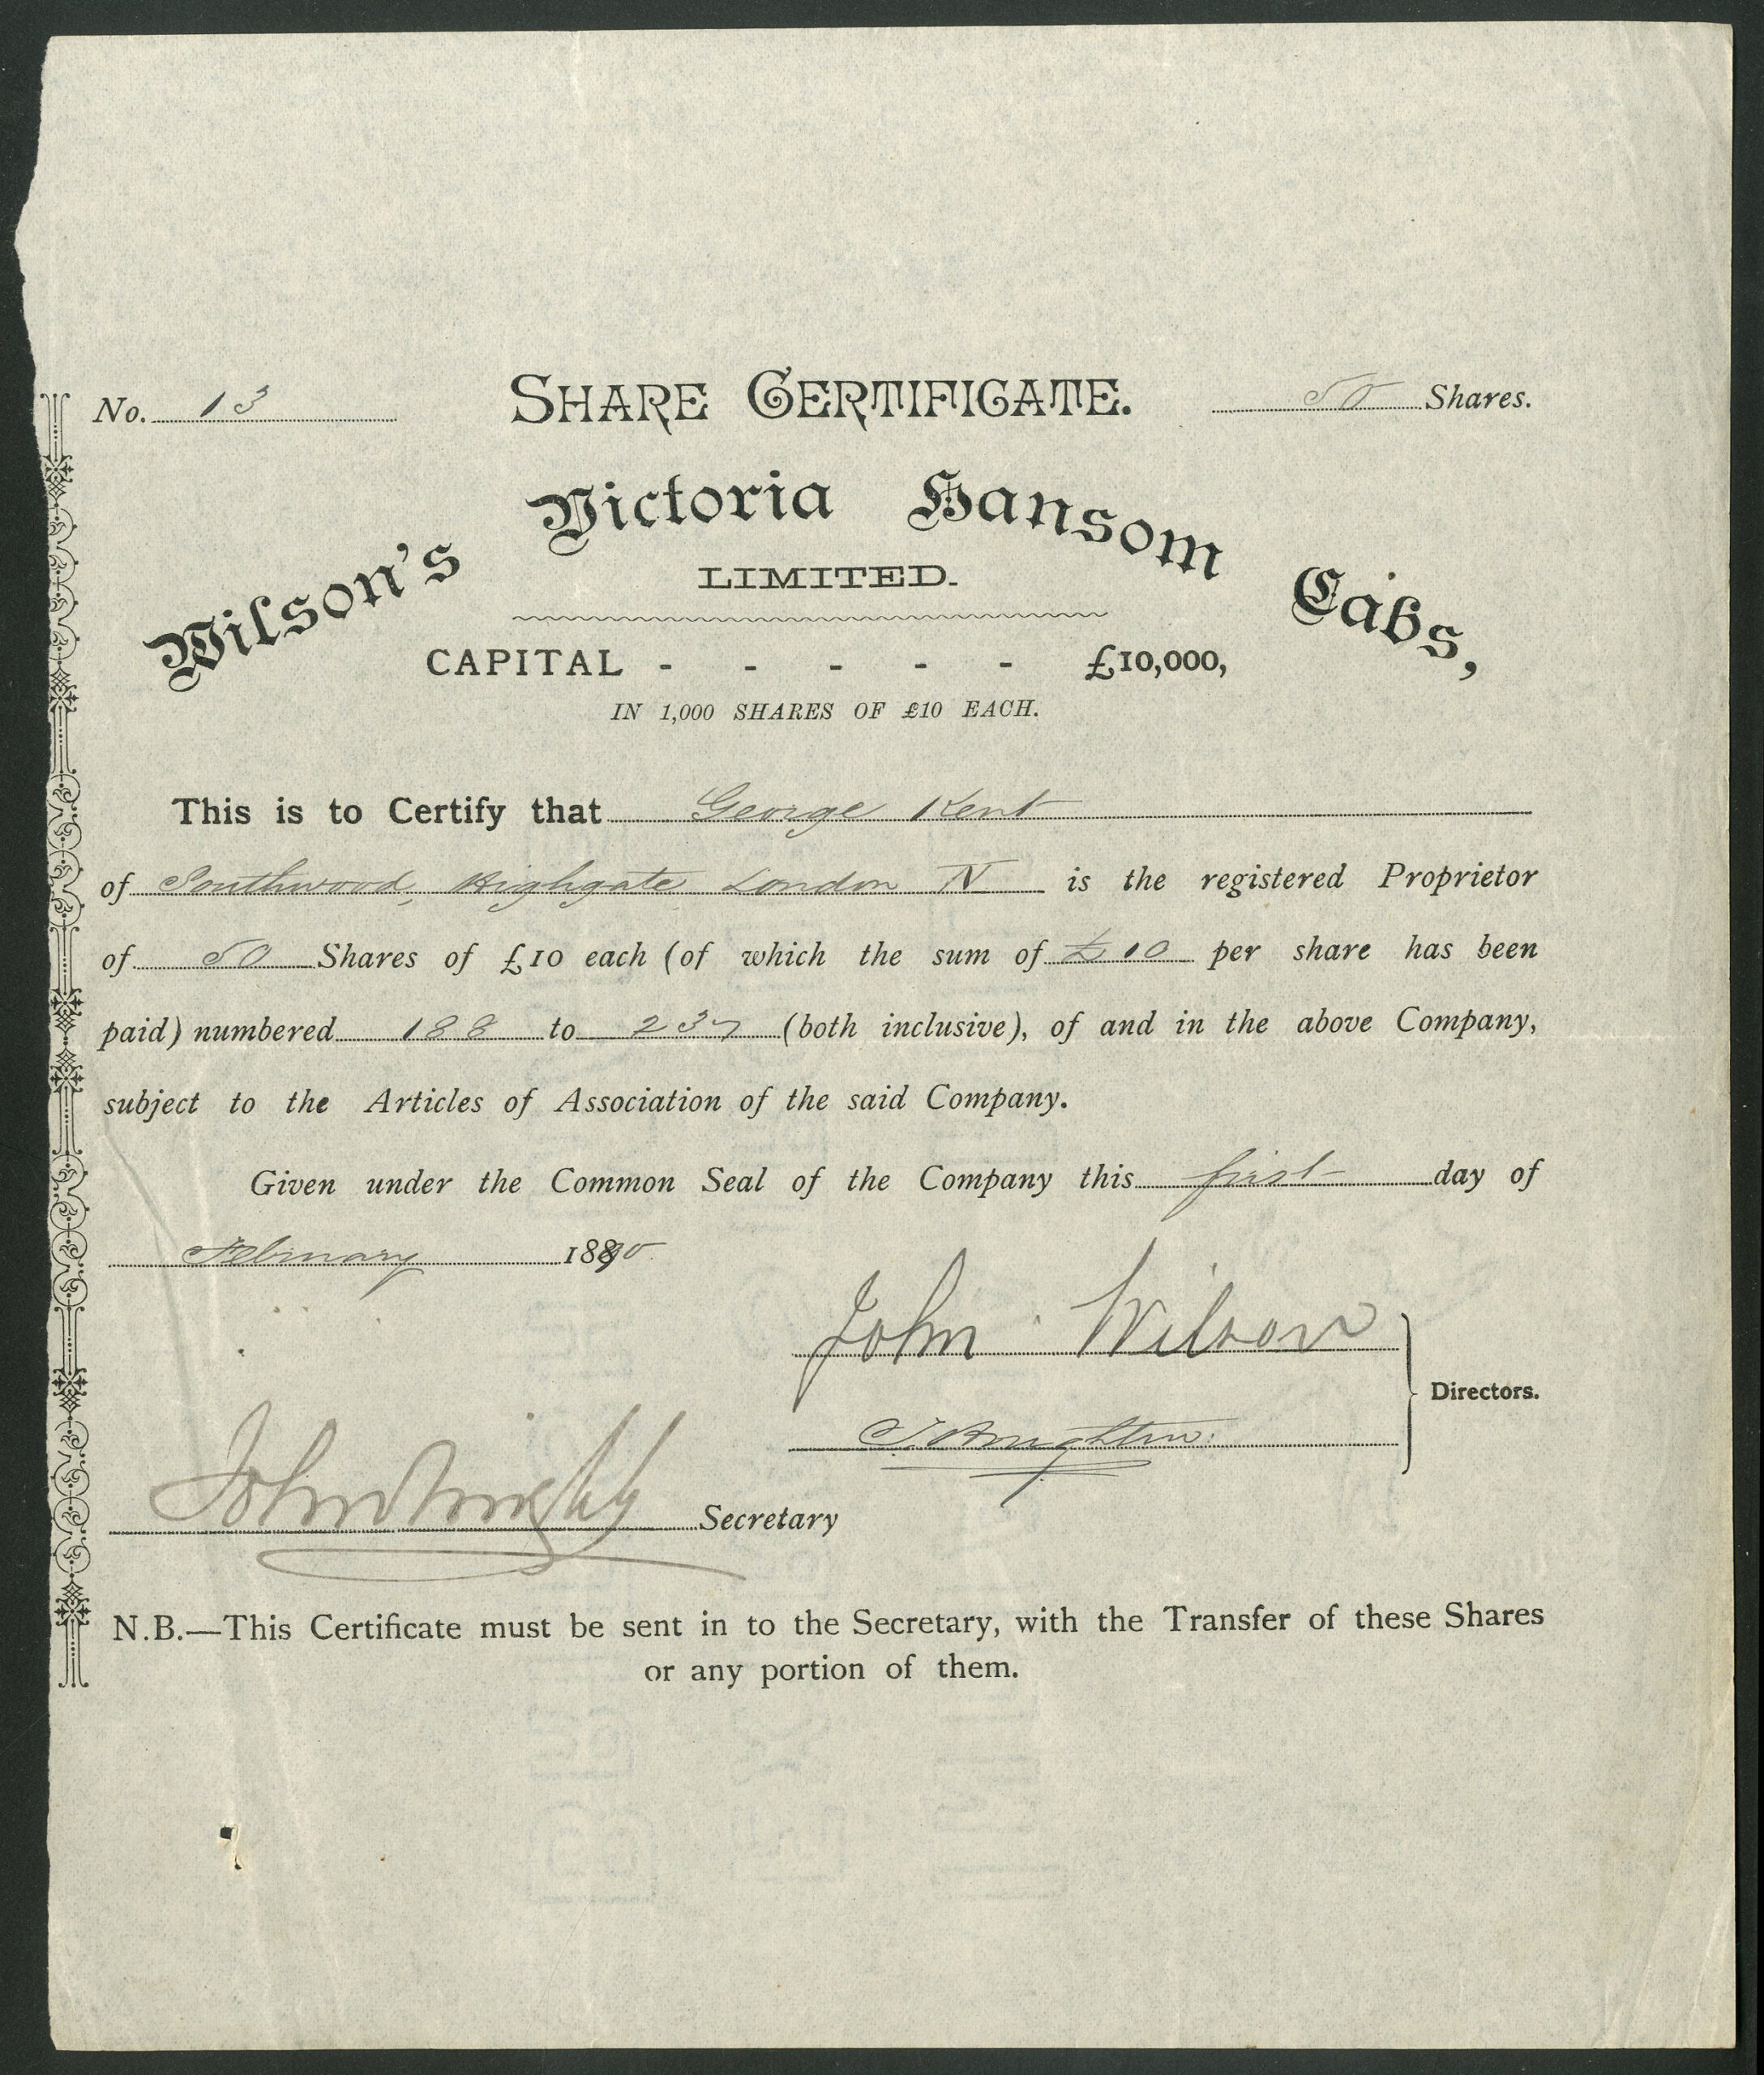 No. 13 SHARE CERTIFICATE. 50 Shares.
Wilson's Victoria Hansom Cabs,
LIMITED.
CAPITAL - - - - - £10,000,
IN 1,000 SHARES OF £10 EACH.
This is to Certify that George Kent
of Southwood, Highgate London N is the registered Proprietor
of 50 Shares of £10 each (of which the sum of £10 per share has been
paid) numbered 188 to 237 (both inclusive), of and in the above Company,
subject to the Articles of Association of the said Company.
Given under the Common Seal of the Company this first day of
February 1890
John Wilson
Directors.
John Secretary
N.B.—This Certificate must be sent in to the Secretary, with the Transfer of these Shares
or any portion of them.